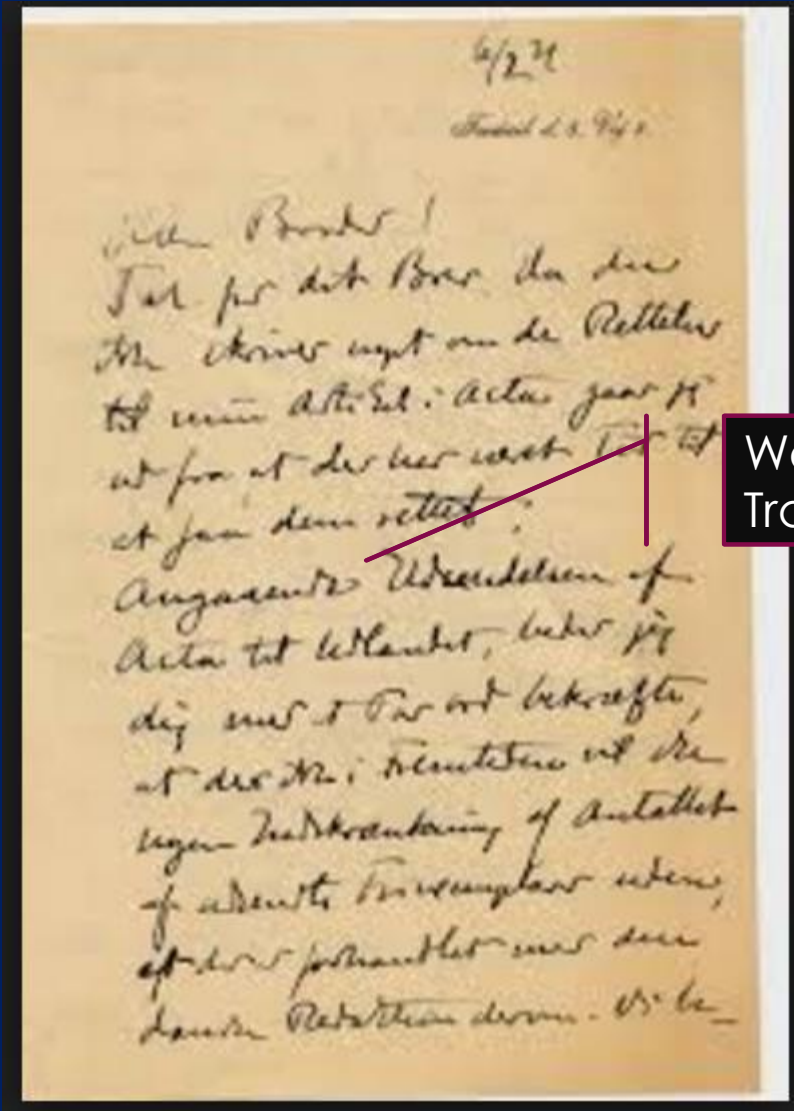 Broder!
Tak for dit Brev. Da du
ikke skriver noget om de Rettelser
til min Artikel i Acta, gaar jeg
ud fra at der har været Tid til
at faa dem rettet;
Angaaende Udsendelsen af
Acta til Udlandet, beder jeg
dig med et Par ord bekræfte,
at der ikke i Fremtiden vil ske
nogen Indskrænkning af Antallet
af udsendte Frixemplarer uden,
at der er forhandlet med den
danske Redaktion derom. Vi be-
We
Tra